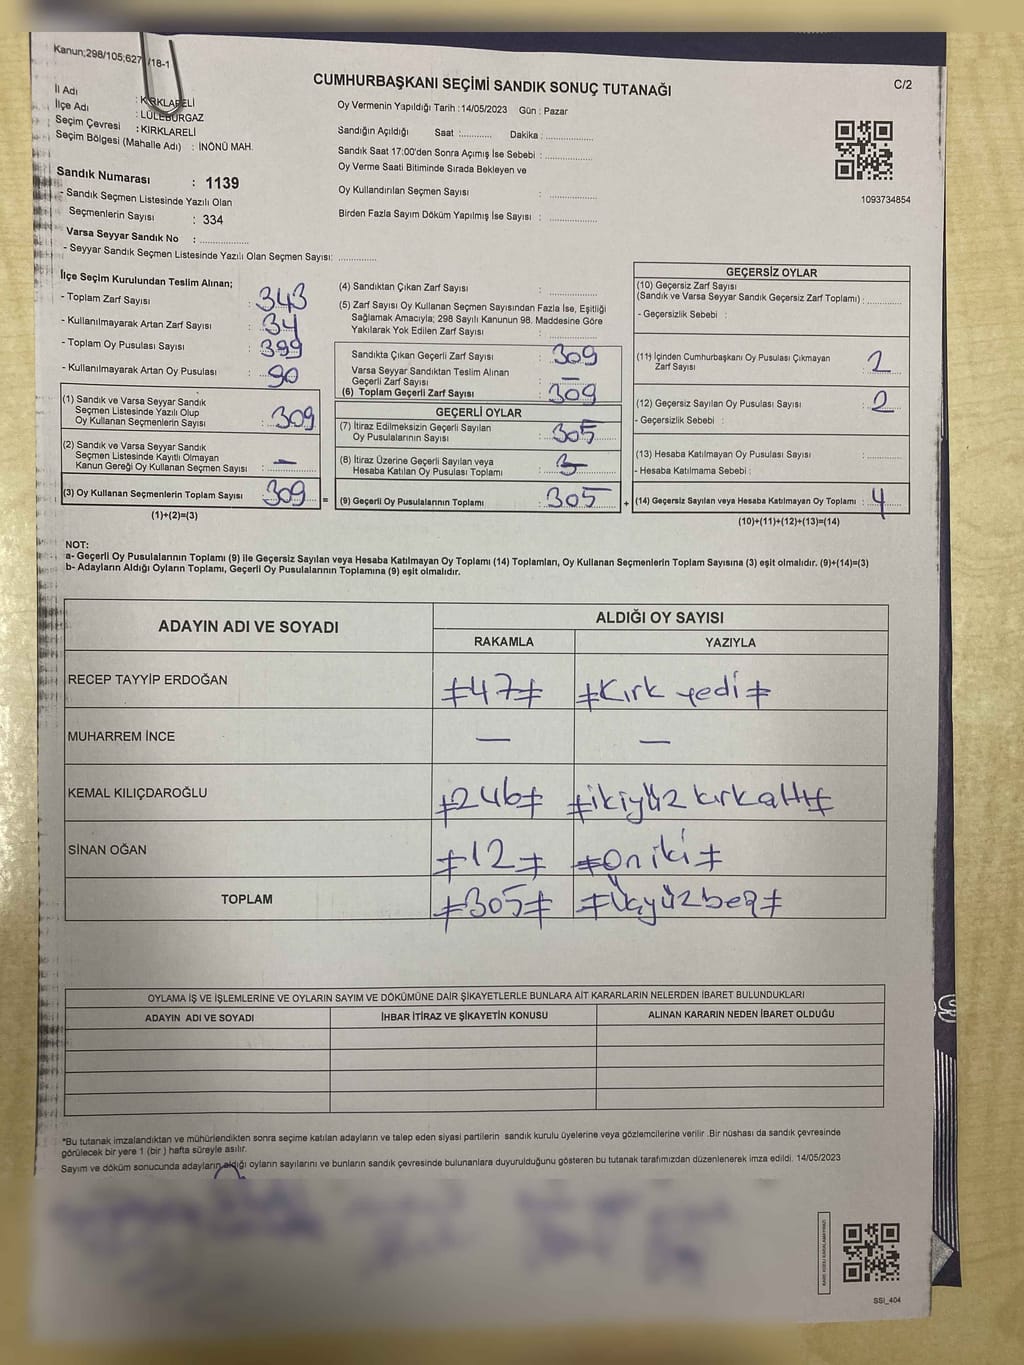 Kanun;298/105;627 /18-1
C/2
CUMHURBAŞKANI SEÇİMİ SANDIK SONUÇ TUTANAĞI
İl Adı : KIRKLARELİ
İlçe Adı : LÜLEBURGAZ
Seçim Çevresi : KIRKLARELİ
Seçim Bölgesi (Mahalle Adı) : İNÖNÜ MAH.
Sandık Numarası : 1139
- Sandık Seçmen Listesinde Yazılı Olan
Seçmenlerin Sayısı : 334
Varsa Seyyar Sandık No : ................
- Seyyar Sandık Seçmen Listesinde Yazılı Olan Seçmen Sayısı: .............
Oy Vermenin Yapıldığı Tarih : 14/05/2023 Gün : Pazar
Sandığın Açıldığı Saat :........... Dakika : ................
Sandık Saat 17:00'den Sonra Açımış İse Sebebi : ................
Oy Verme Saati Bitiminde Sırada Bekleyen ve
Oy Kullandırılan Seçmen Sayısı : ................
Birden Fazla Sayım Döküm Yapılmış İse Sayısı : ................
1093734854
İlçe Seçim Kurulundan Teslim Alınan;
- Toplam Zarf Sayısı : 343
- Kullanılmayarak Artan Zarf Sayısı : 34
- Toplam Oy Pusulası Sayısı : 399
- Kullanılmayarak Artan Oy Pusulası : 90
(1) Sandık ve Varsa Seyyar Sandık
Seçmen Listesinde Yazılı Olup
Oy Kullanan Seçmenlerin Sayısı : 309
(2) Sandık ve Varsa Seyyar Sandık
Seçmen Listesinde Kayıtlı Olmayan
Kanun Gereği Oy Kullanan Seçmen Sayısı : —
(3) Oy Kullanan Seçmenlerin Toplam Sayısı 309 =
(1)+(2)=(3)
(4) Sandıktan Çıkan Zarf Sayısı : ................
(5) Zarf Sayısı Oy Kullanan Seçmen Sayısından Fazla İse, Eşitliği
Sağlamak Amacıyla; 298 Sayılı Kanunun 98. Maddesine Göre
Yakılarak Yok Edilen Zarf Sayısı : ................
Sandıkta Çıkan Geçerli Zarf Sayısı : 309
Varsa Seyyar Sandıktan Teslim Alınan
Geçerli Zarf Sayısı : —
(6) Toplam Geçerli Zarf Sayısı : 309
GEÇERLİ OYLAR
(7) İtiraz Edilmeksizin Geçerli Sayılan
Oy Pusulalarının Sayısı : 305
(8) İtiraz Üzerine Geçerli Sayılan veya
Hesaba Katılan Oy Pusulası Toplamı :
(9) Geçerli Oy Pusulalarının Toplamı : 305 +
GEÇERSİZ OYLAR
(10) Geçersiz Zarf Sayısı
(Sandık ve Varsa Seyyar Sandık Geçersiz Zarf Toplamı) : ............
- Geçersizlik Sebebi :
(11) İçinden Cumhurbaşkanı Oy Pusulası Çıkmayan
Zarf Sayısı : 2
(12) Geçersiz Sayılan Oy Pusulası Sayısı : 2
- Geçersizlik Sebebi :
(13) Hesaba Katılmayan Oy Pusulası Sayısı : ............
- Hesaba Katılmama Sebebi :
(14) Geçersiz Sayılan veya Hesaba Katılmayan Oy Toplamı : 4
(10)+(11)+(12)+(13)=(14)
NOT:
a- Geçerli Oy Pusulalarının Toplamı (9) ile Geçersiz Sayılan veya Hesaba Katılmayan Oy Toplamı (14) Toplamları, Oy Kullanan Seçmenlerin Toplam Sayısına (3) eşit olmalıdır. (9)+(14)=(3)
b- Adayların Aldığı Oyların Toplamı, Geçerli Oy Pusulalarının Toplamına (9) eşit olmalıdır.
ADAYIN ADI VE SOYADI ALDIĞI OY SAYISI
RAKAMLA YAZIYLA
RECEP TAYYİP ERDOĞAN ≠47≠ ≠Kırk yedi≠
MUHARREM İNCE — —
KEMAL KILIÇDAROĞLU ≠246≠ ≠ikiyüz kırkaltı≠
SİNAN OĞAN ≠12≠ ≠on iki≠
TOPLAM ≠305≠ ≠Üçyüzbeş≠
OYLAMA İŞ VE İŞLEMLERİNE VE OYLARIN SAYIM VE DÖKÜMÜNE DAİR ŞİKAYETLERLE BUNLARA AİT KARARLARIN NELERDEN İBARET BULUNDUKLARI
ADAYIN ADI VE SOYADI İHBAR İTİRAZ VE ŞİKAYETİN KONUSU ALINAN KARARIN NEDEN İBARET OLDUĞU
*Bu tutanak imzalandıktan ve mühürlendikten sonra seçime katılan adayların ve talep eden siyasi partilerin sandık kurulu üyelerine veya gözlemcilerine verilir .Bir nüshası da sandık çevresinde
görülecek bir yere 1 (bir ) hafta süreyle asılır.
Sayım ve döküm sonucunda adayların aldığı oyların sayılarını ve bunların sandık çevresinde bulunanlara duyurulduğunu gösteren bu tutanak tarafımızdan düzenlenerek imza edildi. 14/05/2023
SSI_404